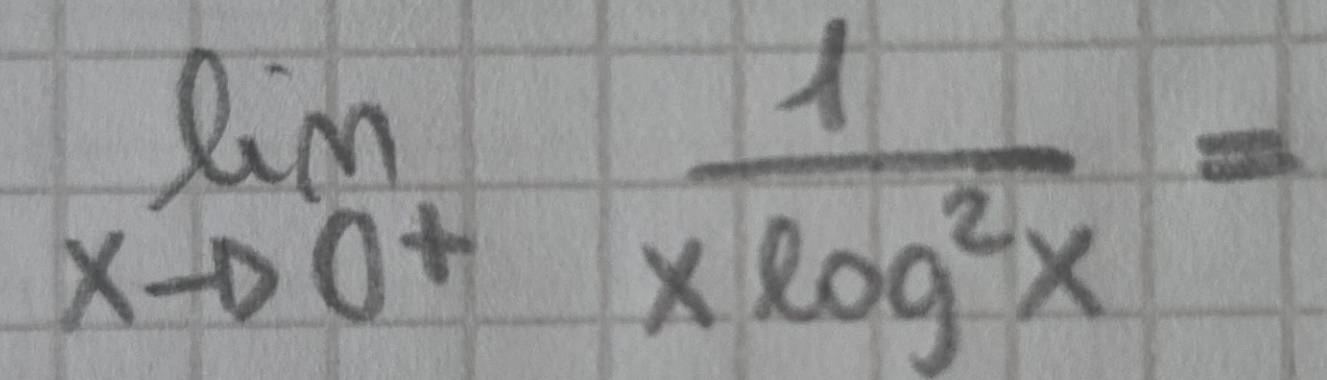 lim x→0⁺ 1/(x log²x) =